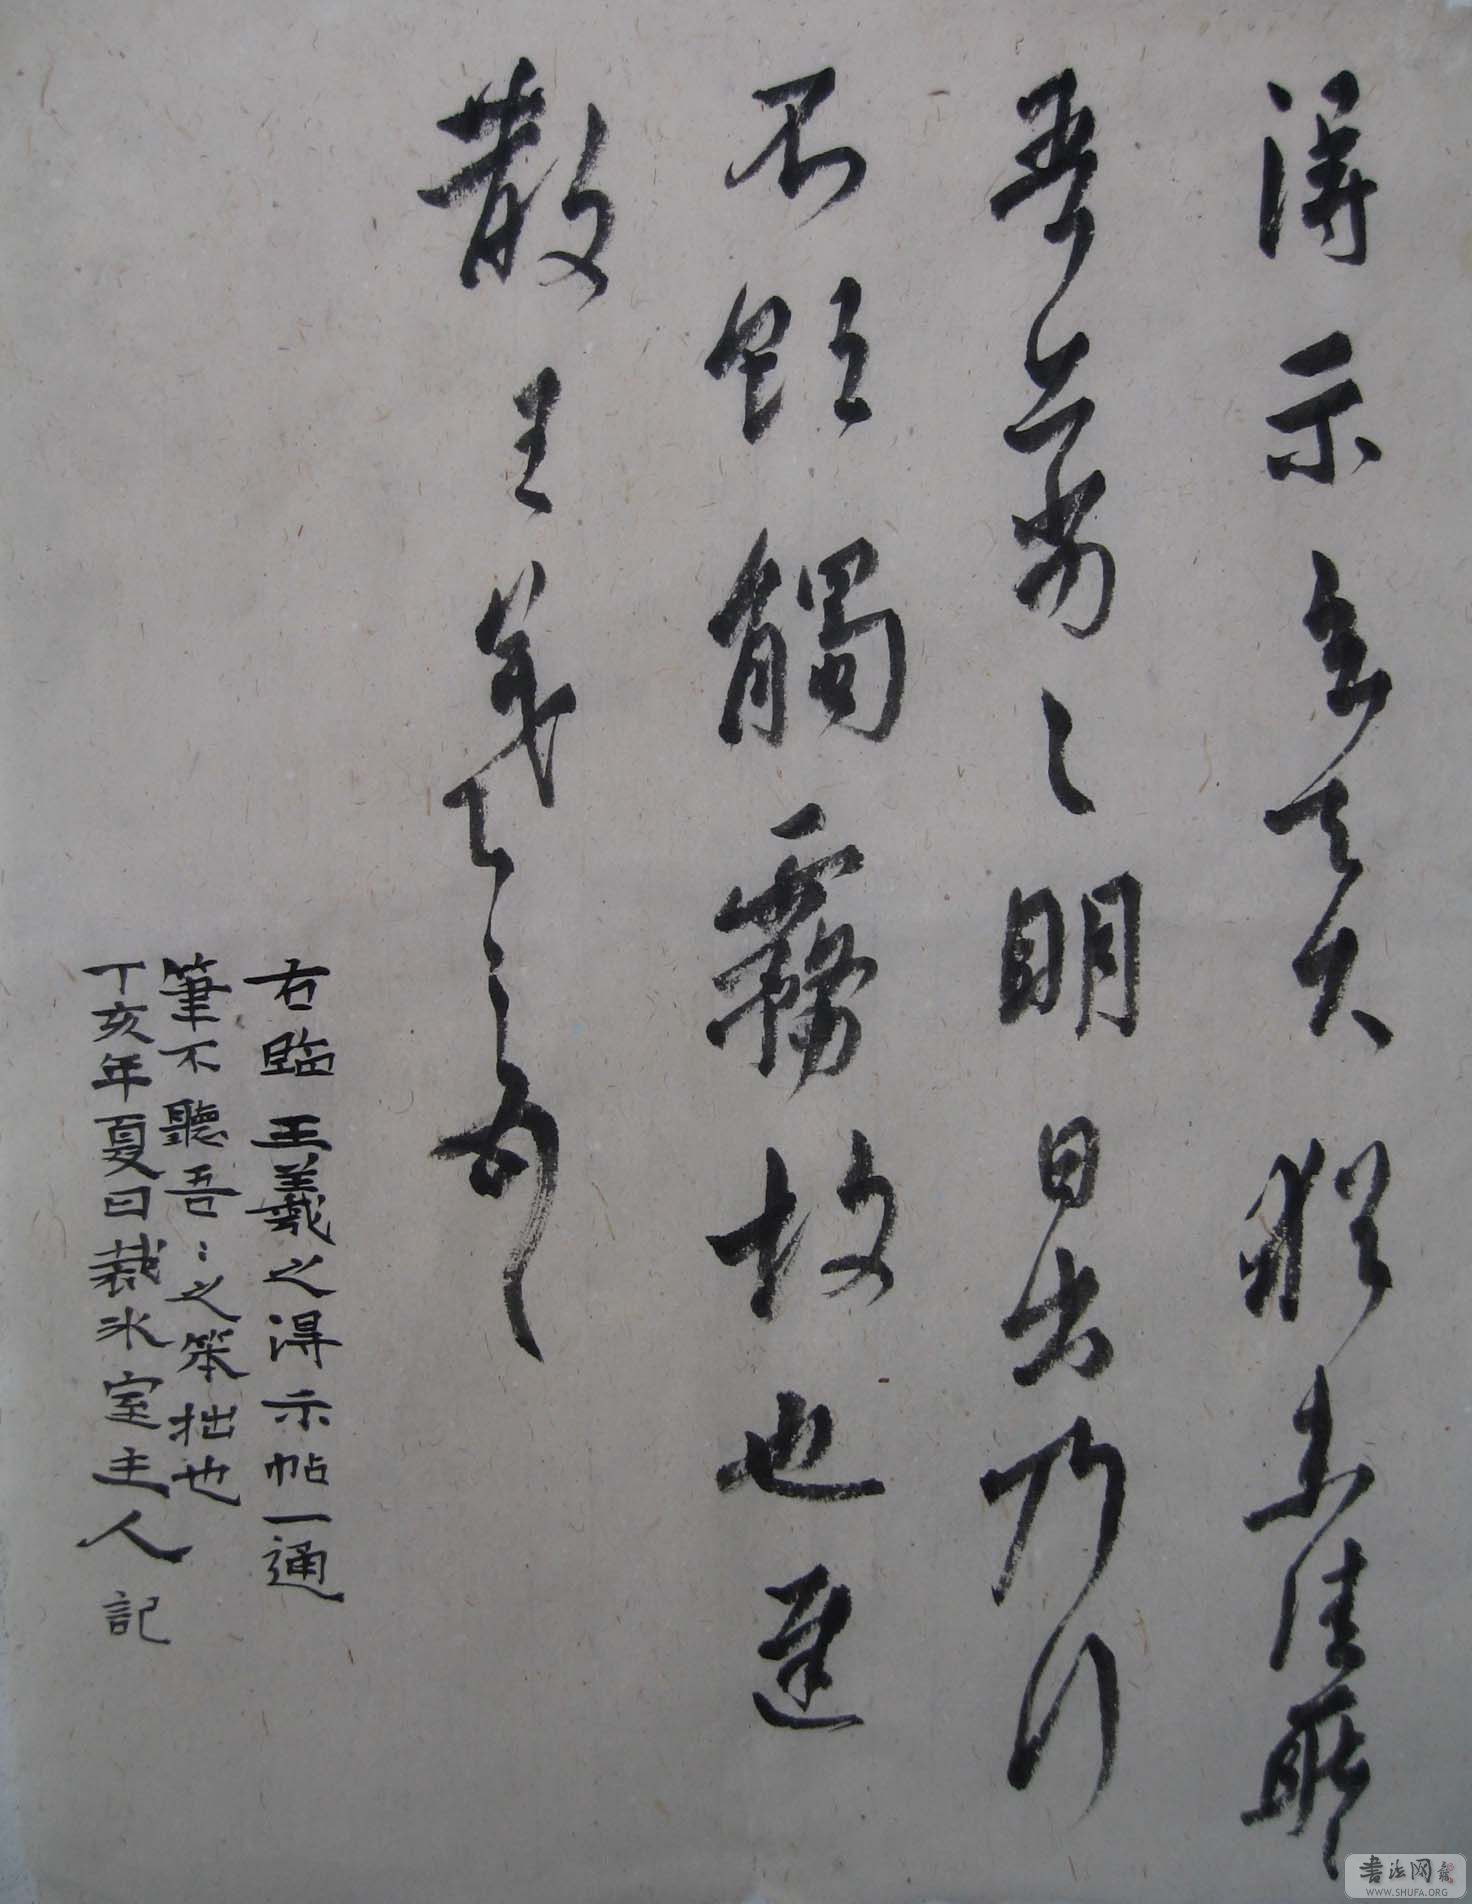 得示知足下猶未佳耿耿
吾亦劣劣明日出乃行
不欲觸霧故也遲
散王羲之頓首
右臨王羲之得示帖一通
筆不聽吾吾之笨拙也
丁亥年夏日裁氷室主人記
書法网
WWW.SHUFA.ORG